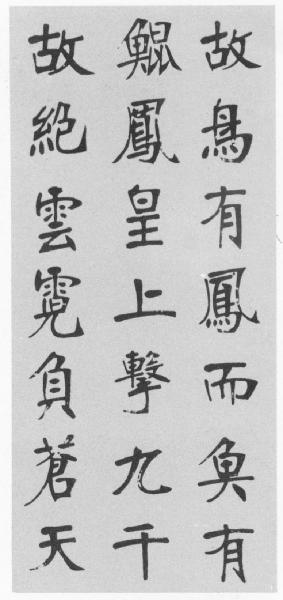 故鳥有鳳而魚有
鯤鳳皇上擊九千
故絶雲霓負蒼天